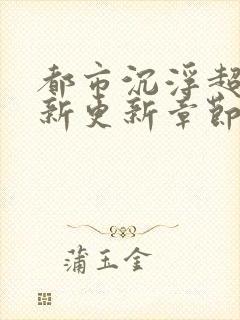 都市沉浮超
新更新章節
蒲玉金